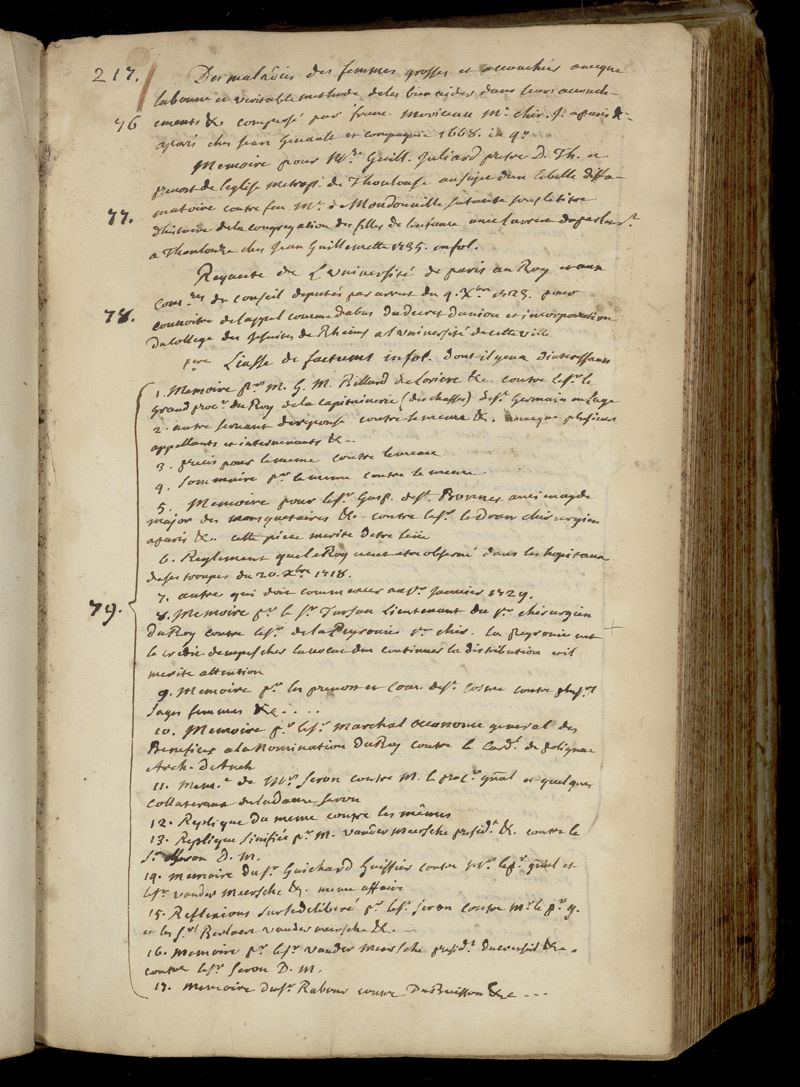 217. Des maladies des femmes grosses et accouchées avecque
la bonne et veritable methode de les bien aider dans leurs accouch-
76 ements &c composé par franc. Moriceau M.e chir. J. a paris &c-
a paris chez Jean henault et compagnie 1668. in 4°
Memoire pour M.re Guill. Juliard pretre D. Th. et
prevost de l'eglise metrop. de Thoulouse au sujet d'un libelle diffa-
77. matoire contre feu M.e de Mondonville sa tante sous le titre
d'histoire de la congregation des filles de l'enfance
a Thoulouze chez Jean Guillemette 1735. in fol.
Requete de L'université de paris au Roy et aux
78. Com.res du conseil deputés par arrest du 9. Xbre 1725. pour
connoitre de l'appel comme d'abus du decret d'union et incorporation
du college des Jesuites de Rheims a l'université de cette ville
1ere Liasse de factums in fol. dont il y en a d'interessans
1. Memoire pour M. G. M. Billard de Loriere &c. contre le s.r le
Grand proc.r du Roy de la capitainerie (des chasses) de s.t Germain en Laye
2. autre servant de reponse contre le meme &c. avecque plusieurs
appellants et intervenants &c-
3. precis pour le meme contre le meme
4. Sommaire p.r le meme contre le meme
5. Memoire pour le s.r Gasp. de
major des mousquetaires &c- contre le s.r le Dran chirurgien
a paris &c. cette piece merite d'etre lue
6. Reglement que le Roy veut etre observé dans les hopitaux
de ses troupes du 20. Xbre 1718.
7. autre qui doit commencer au 1er janvier 1729.
79. 8. Memoire p.r le s.r Lieutenant du 1.er chirurgien
du Roy contre le s.r de la Peyronie 1.er chir. la Peyronie eut
le credit d'empescher la distribution il
merite attention
9. Memoire p.r les prevost et Com. de s.t Cosme contre plus.rs
Sages femmes &c. . . .
10. Memoire p.r le s.r Marchal Oeconome general des
Benefices a la Nomination du Roy contre le Card.l de polignac
Arch. D'Auch
11. Mem.e de M.e Seron contre M. le proc.r gñal et quelques
Collateraux de la dame seron
12. Replique du meme contre les mêmes
13. Replique sinifiée p.r M. vander Meersche presid.t &c. contre le
S.r Seron D. M.
14. Memoire du s.r Guichard Huissier contre M.r le p.r gñal et
le s.r vander Meersche &c. meme affaire
15. Reflexions sur le deliberé p.r le s.r Seron contre M.r le p.r g.
et les s.rs vander meersche &c. -
16. Memoire p.r le s.r vander Meersche presid.t du conseil &c.
contre le s.r Seron D. M.
17. Memoire du s.r Rabour contre Du Buisson &c ---